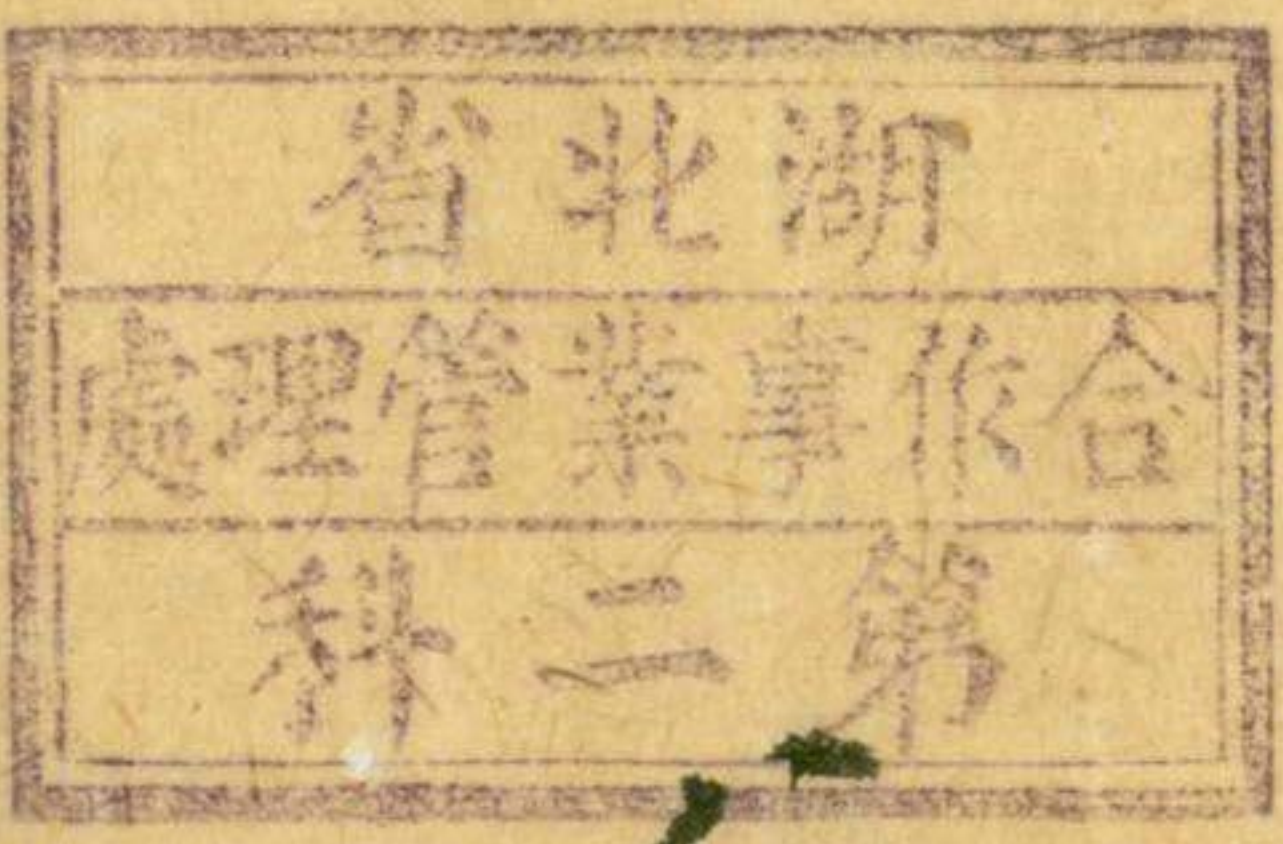 湖北省
合作事業管理處
第二科